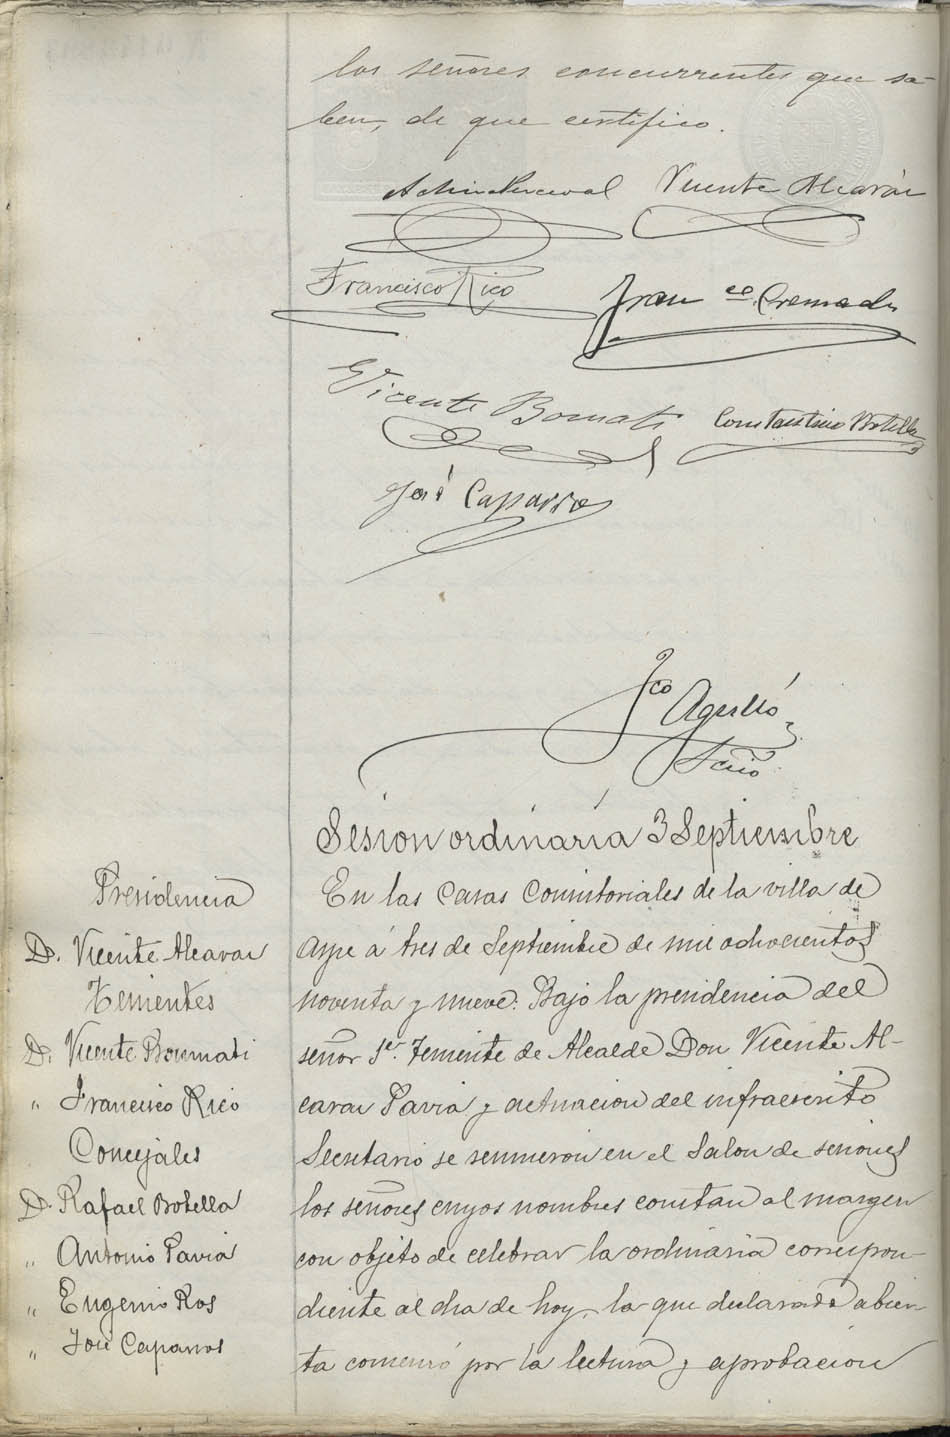 los señores concurrentes que sa-
ben, de que certifico.
Vicente Alcaraz
Francisco Rico
Fran co Cremades
Vicente Bonmati
Constantino Botella
José Caparros
Fco Agulló
Srio
Sesion ordinaria 3 Septiembre
Presidencia
D. Vicente Alcaraz
Tenientes
D. Vicente Bonmati
" Francisco Rico
Concejales
D. Rafael Botella
" Antonio Pavia
" Eugenio Ros
" José Caparros
En las Casas Consistoriales de la villa de
Aspe á tres de Septiembre de mil ochocientos
noventa y nueve: Bajo la presidencia del
señor 1er. Teniente de Alcalde Don Vicente Al-
caraz Pavia y actuacion del infraescrito
Secretario se reunieron en el Salon de sesiones
los señores cuyos nombres constan al margen
con objeto de celebrar la ordinaria correspon-
diente al dia de hoy, la que declarada abier-
ta comenzó por la lectura y aprobacion